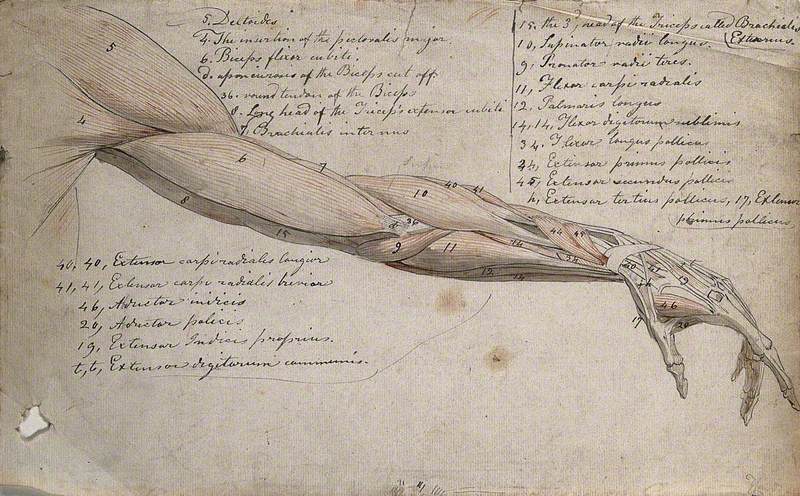 5. Deltoides
4. The insertion of the pectoralis major
6. Biceps flexor cubiti.
d. aponeurosis of the Biceps cut off
36. round tendon of the Biceps
8. Long head of the Triceps extensor cubiti
7. Brachialis internus
15. the 3d head of the Triceps called Brachialis
Externus.
10, Supinator radii longus.
9, Pronator radii teres.
11, Flexor carpi radialis
12, Palmaris longus
14, 14, Flexor digitorum sublimis
34. Flexor longus pollicus
24, Extensor primus pollicis
45, Extensor secundus pollicis
h, Extensor tertius pollicus, 17, Extensor
primus pollicus
40, 40, Extensor carpi radialis longior
41, 41, Extensor carpi radialis brevior
46, Aductor indicis
20, Aductor policis
19, Extensor Indicis proprius.
t, t, Extensor digitorum communis.
5
4
6
7
8
15
10
40
41
d
36
9
11
14
12
14
44
45
34
19
46
17
20